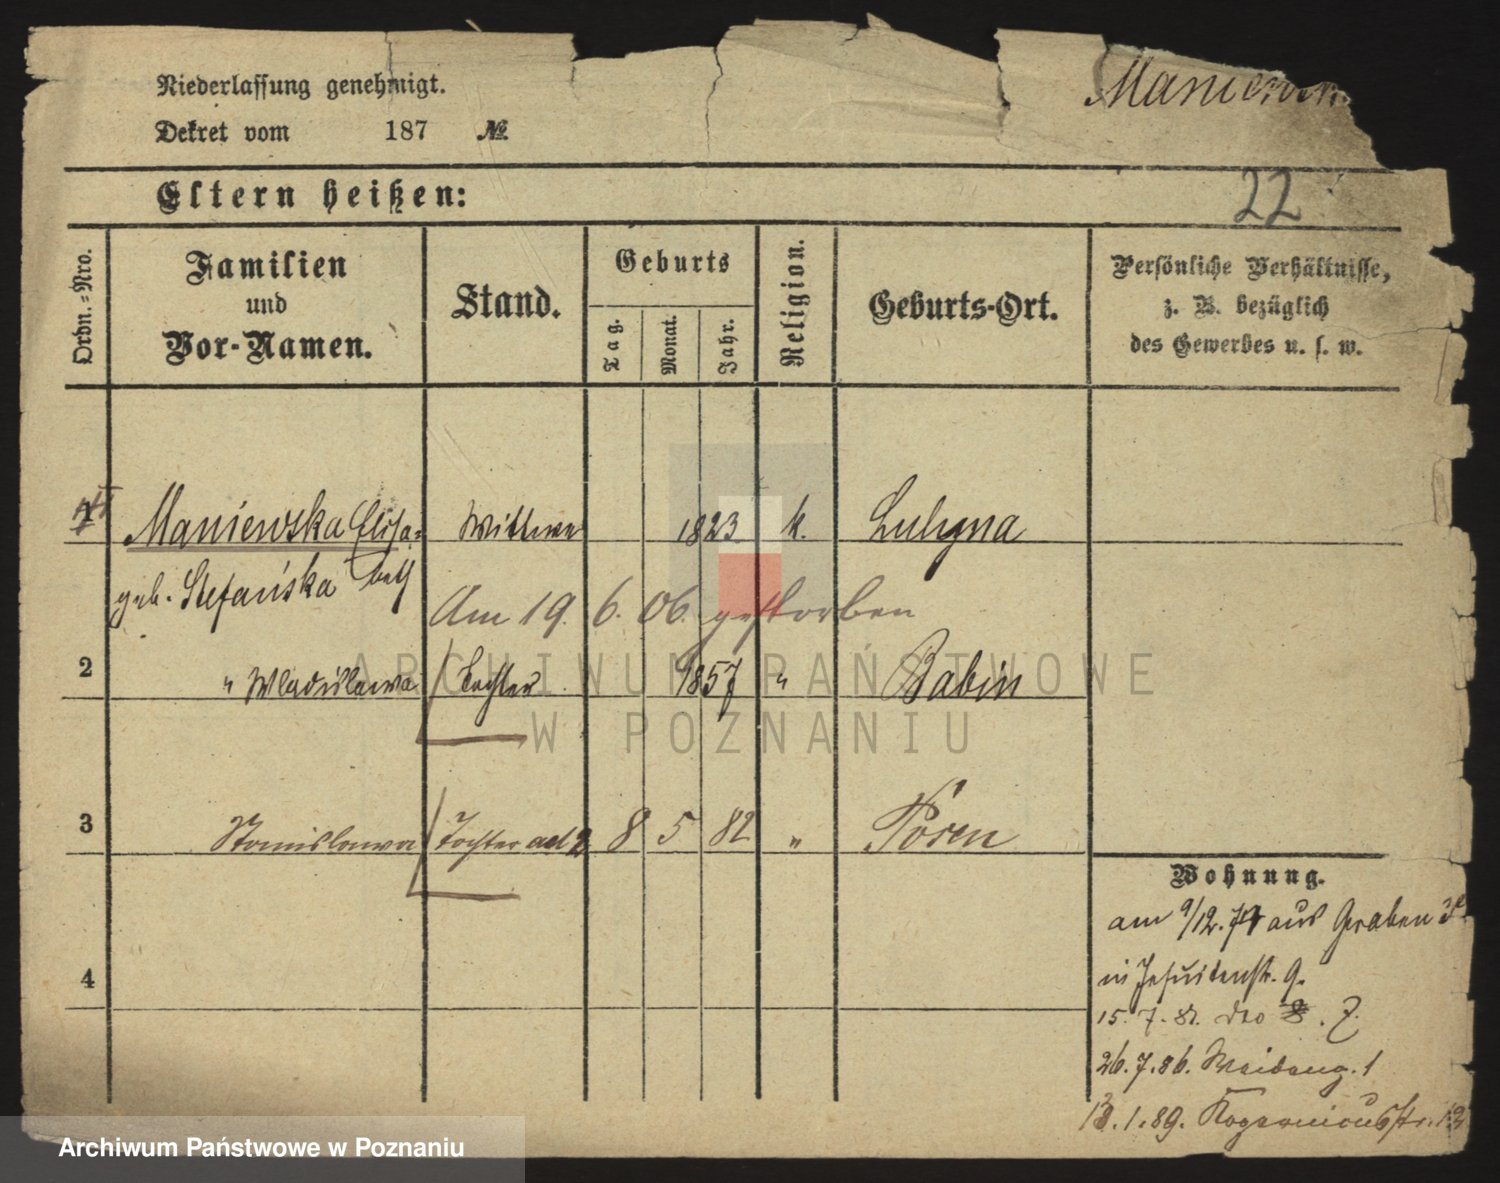 Niederlassung genehmigt.
Dekret vom 187 №
22
Eltern heißen:
Ordn.-Nro.
Familien
und
Vor-Namen.
Stand.
Geburts
Tag.
Monat.
Jahr.
Religion.
Geburts-Ort.
Persönliche Verhältnisse,
z. B. bezüglich
des Gewerbes u. s. w.
Maniewska Elisa= Wittwe 1823 k.
geb. Stefańska beth
Am 19. 6. 06. gestorben
2 " Wladislawa Tochter 1857 " Babin
3 Stanislawa Tochter ad 2 8 5 82 " Posen
4
Wohnung.
am 9/12. aus Graben
in Jesuitenstr. 9.
15. 7. 81. dto
26. 7. 86. 1
1. 89.
ARCHIWUM PAŃSTWOWE
W POZNANIU
Archiwum Państwowe w Poznaniu